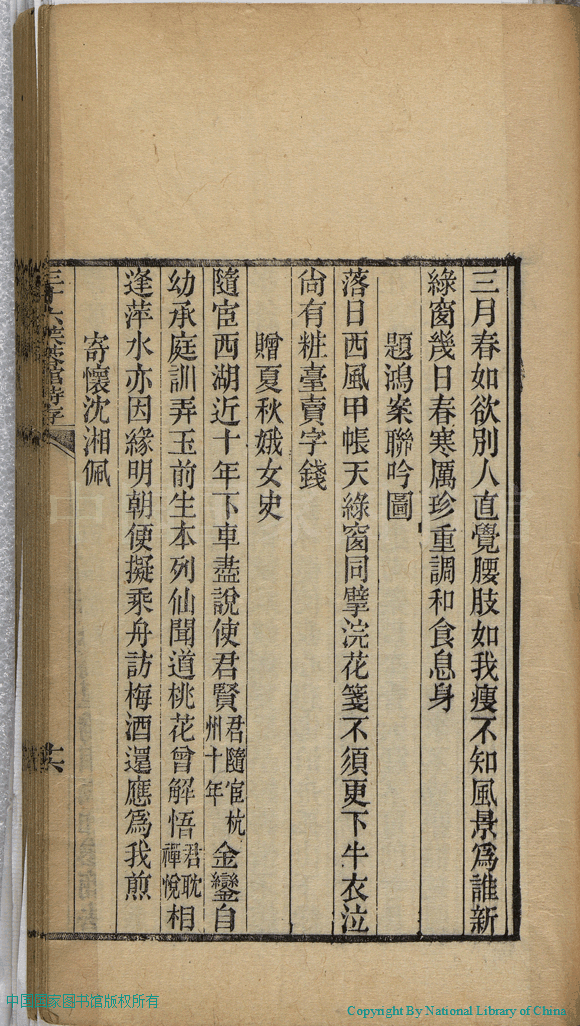 三月春如欲別人直覺腰肢如我瘦不知風景爲誰新
綠窗幾日春寒厲珍重調和食息身
題鴻案聯吟圖
落日西風甲帳天綠窗同擘浣花箋不須更下牛衣泣
尙有粧臺賣字錢
贈夏秋娥女史
隨宦西湖近十年下車盡說使君賢君隨宦杭州十年金鑾自
幼承庭訓弄玉前生本列仙聞道桃花曾解悟君耽禪悅相
逢萍水亦因緣明朝便擬乘舟訪梅酒還應爲我煎
寄懷沈湘佩
三十六芙蓉館詩存
中国国家图书馆版权所有
Copyright By National Library of China